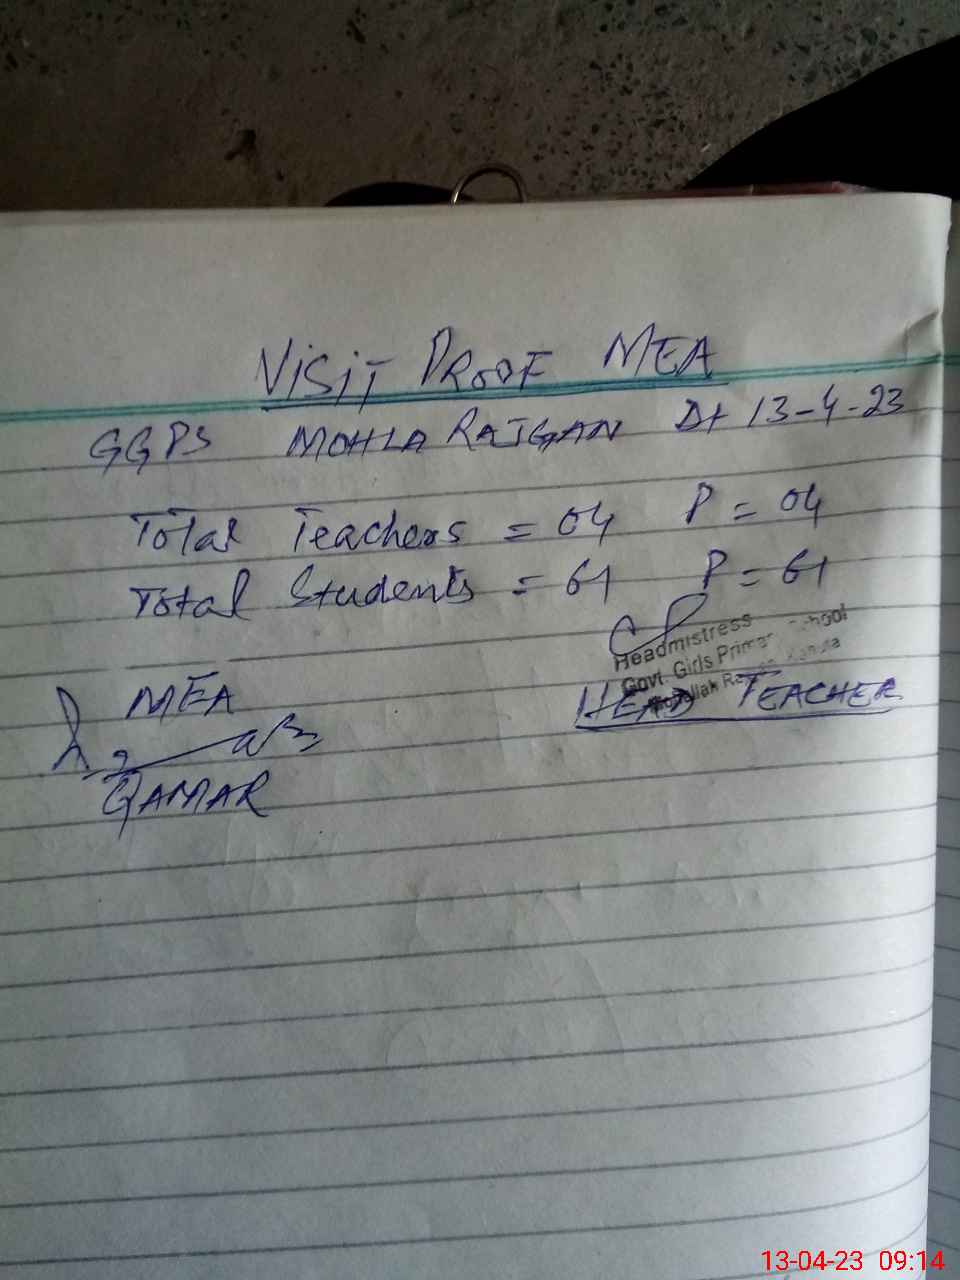 VISIT PROOF MEA
GGPS MOHLA RAJGAN Dt 13-4-23
Total Teachers = 04 P = 04
Total Students = 61 P = 61
Headmistress
Govt. Girls Primar School
MEA
HEAD TEACHER
QAMAR
13-04-23 09:14